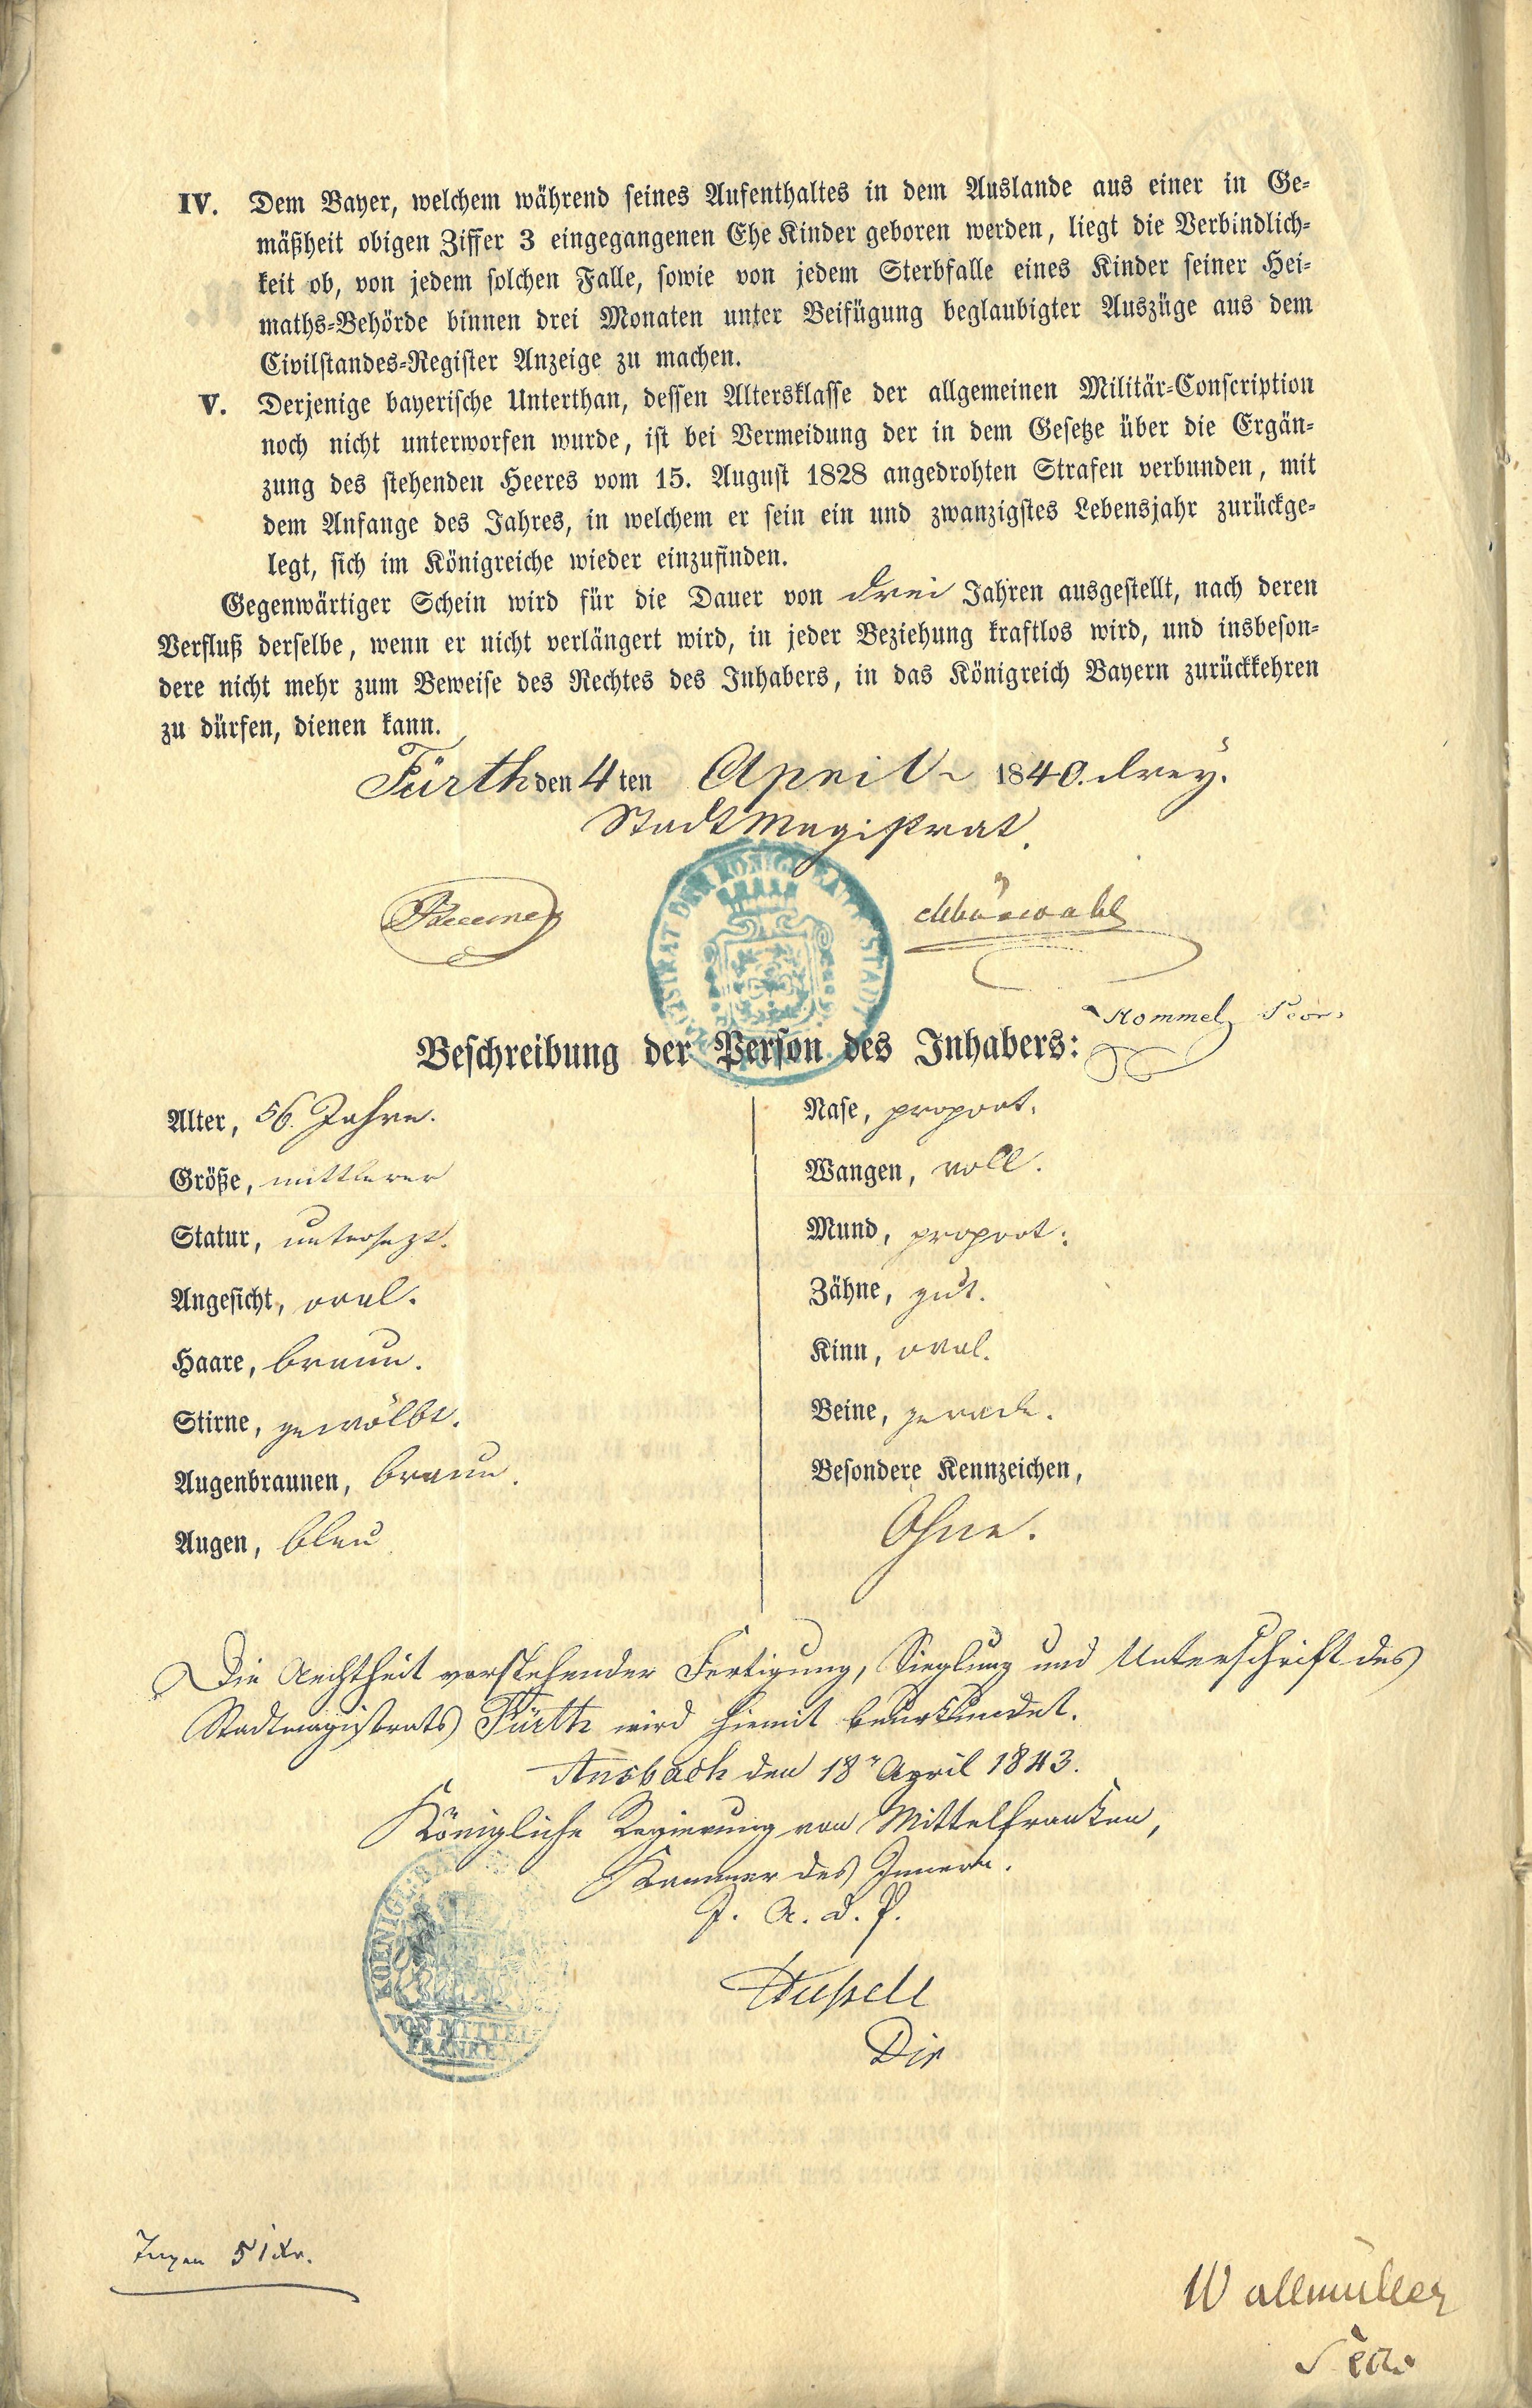 IV. Dem Bayer, welchem während seines Aufenthaltes in dem Auslande aus einer in Ge-
mäßheit obigen Ziffer 3 eingegangenen Ehe Kinder geboren werden, liegt die Verbindlich-
keit ob, von jedem solchen Falle, sowie von jedem Sterbfalle eines Kinder seiner Hei-
maths-Behörde binnen drei Monaten unter Beifügung beglaubigter Auszüge aus dem
Civilstandes-Register Anzeige zu machen.
V. Derjenige bayerische Unterthan, dessen Altersklasse der allgemeinen Militär-Conscription
noch nicht unterworfen wurde, ist bei Vermeidung der in dem Gesetze über die Ergän-
zung des stehenden Heeres vom 15. August 1828 angedrohten Strafen verbunden, mit
dem Anfange des Jahres, in welchem er sein ein und zwanzigstes Lebensjahr zurückge-
legt, sich im Königreiche wieder einzufinden.
Gegenwärtiger Schein wird für die Dauer von drei Jahren ausgestellt, nach deren
Verfluß derselbe, wenn er nicht verlängert wird, in jeder Beziehung kraftlos wird, und insbeson-
dere nicht mehr zum Beweise des Rechtes des Inhabers, in das Königreich Bayern zurückkehren
zu dürfen, dienen kann.
Fürth den 4 ten April 1840. drey.
Stadt Magistrat.
Bäumer
MAGISTRAT DER KÖNIGL. BAYER. STADT
Hommel
Beschreibung der Person des Inhabers:
Alter, 56. Jahre.
Größe, mittlerer
Statur, untersezt.
Angesicht, oval.
Haare, braun.
Stirne, gewölbt.
Augenbraunen, braun.
Augen, blau
Nase, proport.
Wangen, voll.
Mund, proport:
Zähne, gut.
Kinn, oval.
Beine, gerade.
Besondere Kennzeichen,
Ohne.
Die Aechtheit vorstehender Fertigung, Sieglung und Unterschrift des
Stadtmagistrats Fürth wird hiemit beurkundet.
Ansbach den 18n April 1843.
Königliche Regierung von Mittelfranken,
Kammer des Innern.
KOENIGL. BA
VON MITTEL-
FRANKEN
Dir
Taxen 51 Kr.
Wallmüller